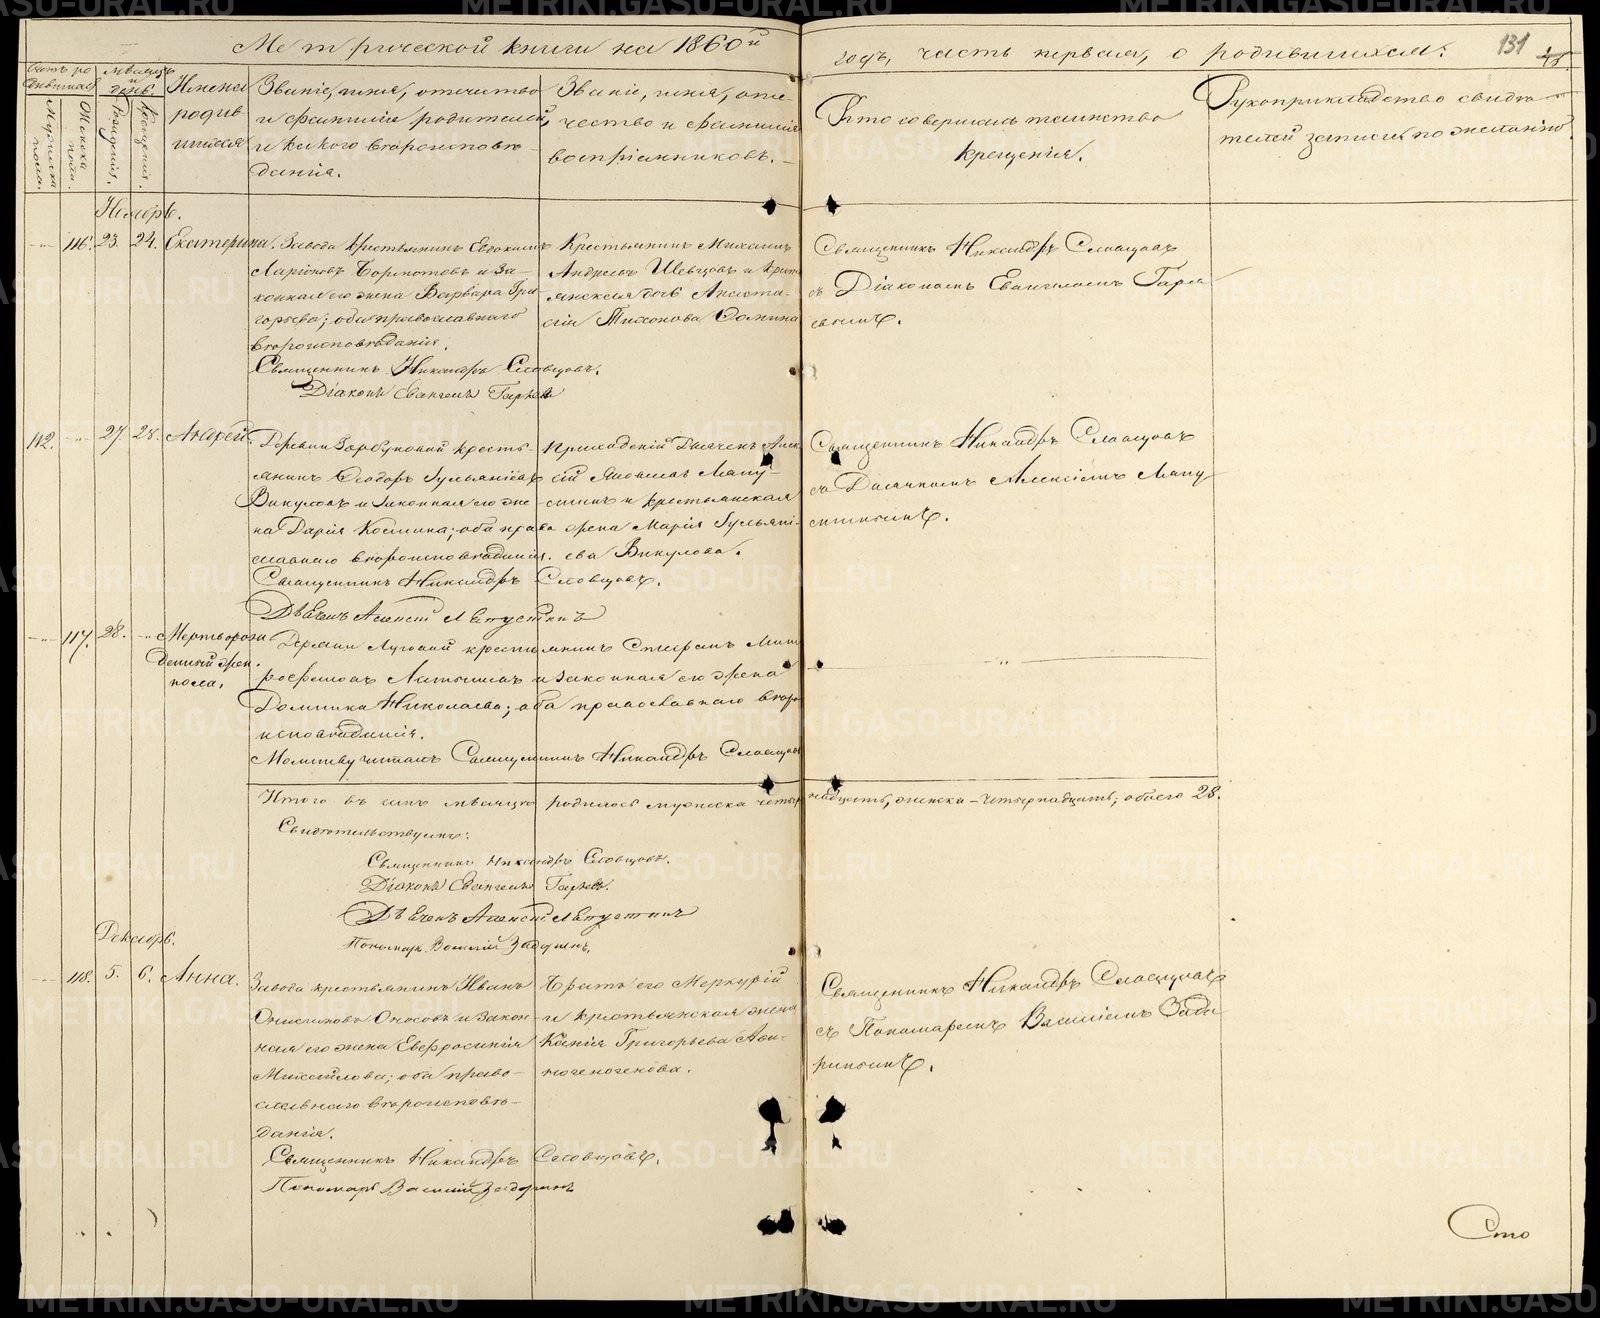 Метрической книги на 1860й годъ, часть первая, о родившихся: 131
Счетъ родившихся
Мужеска пола.
Женска пола.
Мѣсяцъ и день
Рожденія.
Крещенія.
Имена родившихся
Званіе, имя, отчество и фамилія родителей, и какого вѣроисповѣданія.
Званіе, имя, отчество и фамилія воспріемниковъ.
Кто совершалъ таинство крещенія.
Рукоприкладство свидѣтелей записи по желанію.
Ноябрь.
116. 23. 24. Екатерина.
Завода Крестьянинъ Евдокимъ
Ларіоновъ и за-
конная его жена Варвара Гри-
горьева; оба православнаго
вѣроисповѣданія.
Священникъ Никандръ Словцовъ.
Діаконъ Евангелъ Гаряевъ
Крестьянинъ Михаилъ
Андреевъ Шевцовъ и крест
янская дочь Анаста-
сія Тихонова Фомина
Священникъ Никандръ Словцовъ
съ Діакономъ Евангеломъ Гаря
евымъ.
112. 27. 28. Андрей.
Деревни Горбуновой кресть-
янинъ Ѳеодоръ
Викуловъ и законная его же-
на Дарія Космина; оба право
славнаго вѣроисповѣданія.
Священникъ Никандръ Словцовъ.
Дьячекъ Алексѣй Лапустинъ
Приходскій Дьячекъ Алек
сій Лапу-
стинъ и крестьянская
жена Марія
ева Викулова.
Священникъ Никандръ Словцовъ
съ Дьячкомъ Алексіемъ Лапу
стинымъ.
117. 28. Мертворож
денный жен.
пола.
Деревни Луговой крестьянинъ Стефанъ Мит
рофановъ и законная его жена
Домника Николаева; оба православнаго вѣро
исповѣданія.
Молитву читалъ Священникъ Никандръ Словцовъ
Итого въ семъ мѣсяцѣ родилось мужеска четыр надцать, женска - четырнадцать; обоего 28.
Свидѣтельствуемъ:
Священникъ Никандръ Словцовъ.
Діаконъ Евангелъ Гаряевъ.
Дьячекъ Алексѣй Лапустинъ
Пономарь Василій Задоринъ.
Декабрь.
118. 5. 6. Анна.
Завода крестьянинъ Иванъ
Онисимовъ Оносовъ и закон-
ная его жена Евфросинія
Михайлова; оба право-
славнаго вѣроисповѣ-
данія.
Священникъ Никандръ Словцовъ.
Пономарь Василій Задоринъ
Братъ его Меркурій
и крестьянская жена
Ксенія Григорьева
Священникъ Никандръ Словцовъ
съ Пономаремъ Василіемъ Задо
ринымъ.
Сто
METRIKI.GASO-URAL.RU